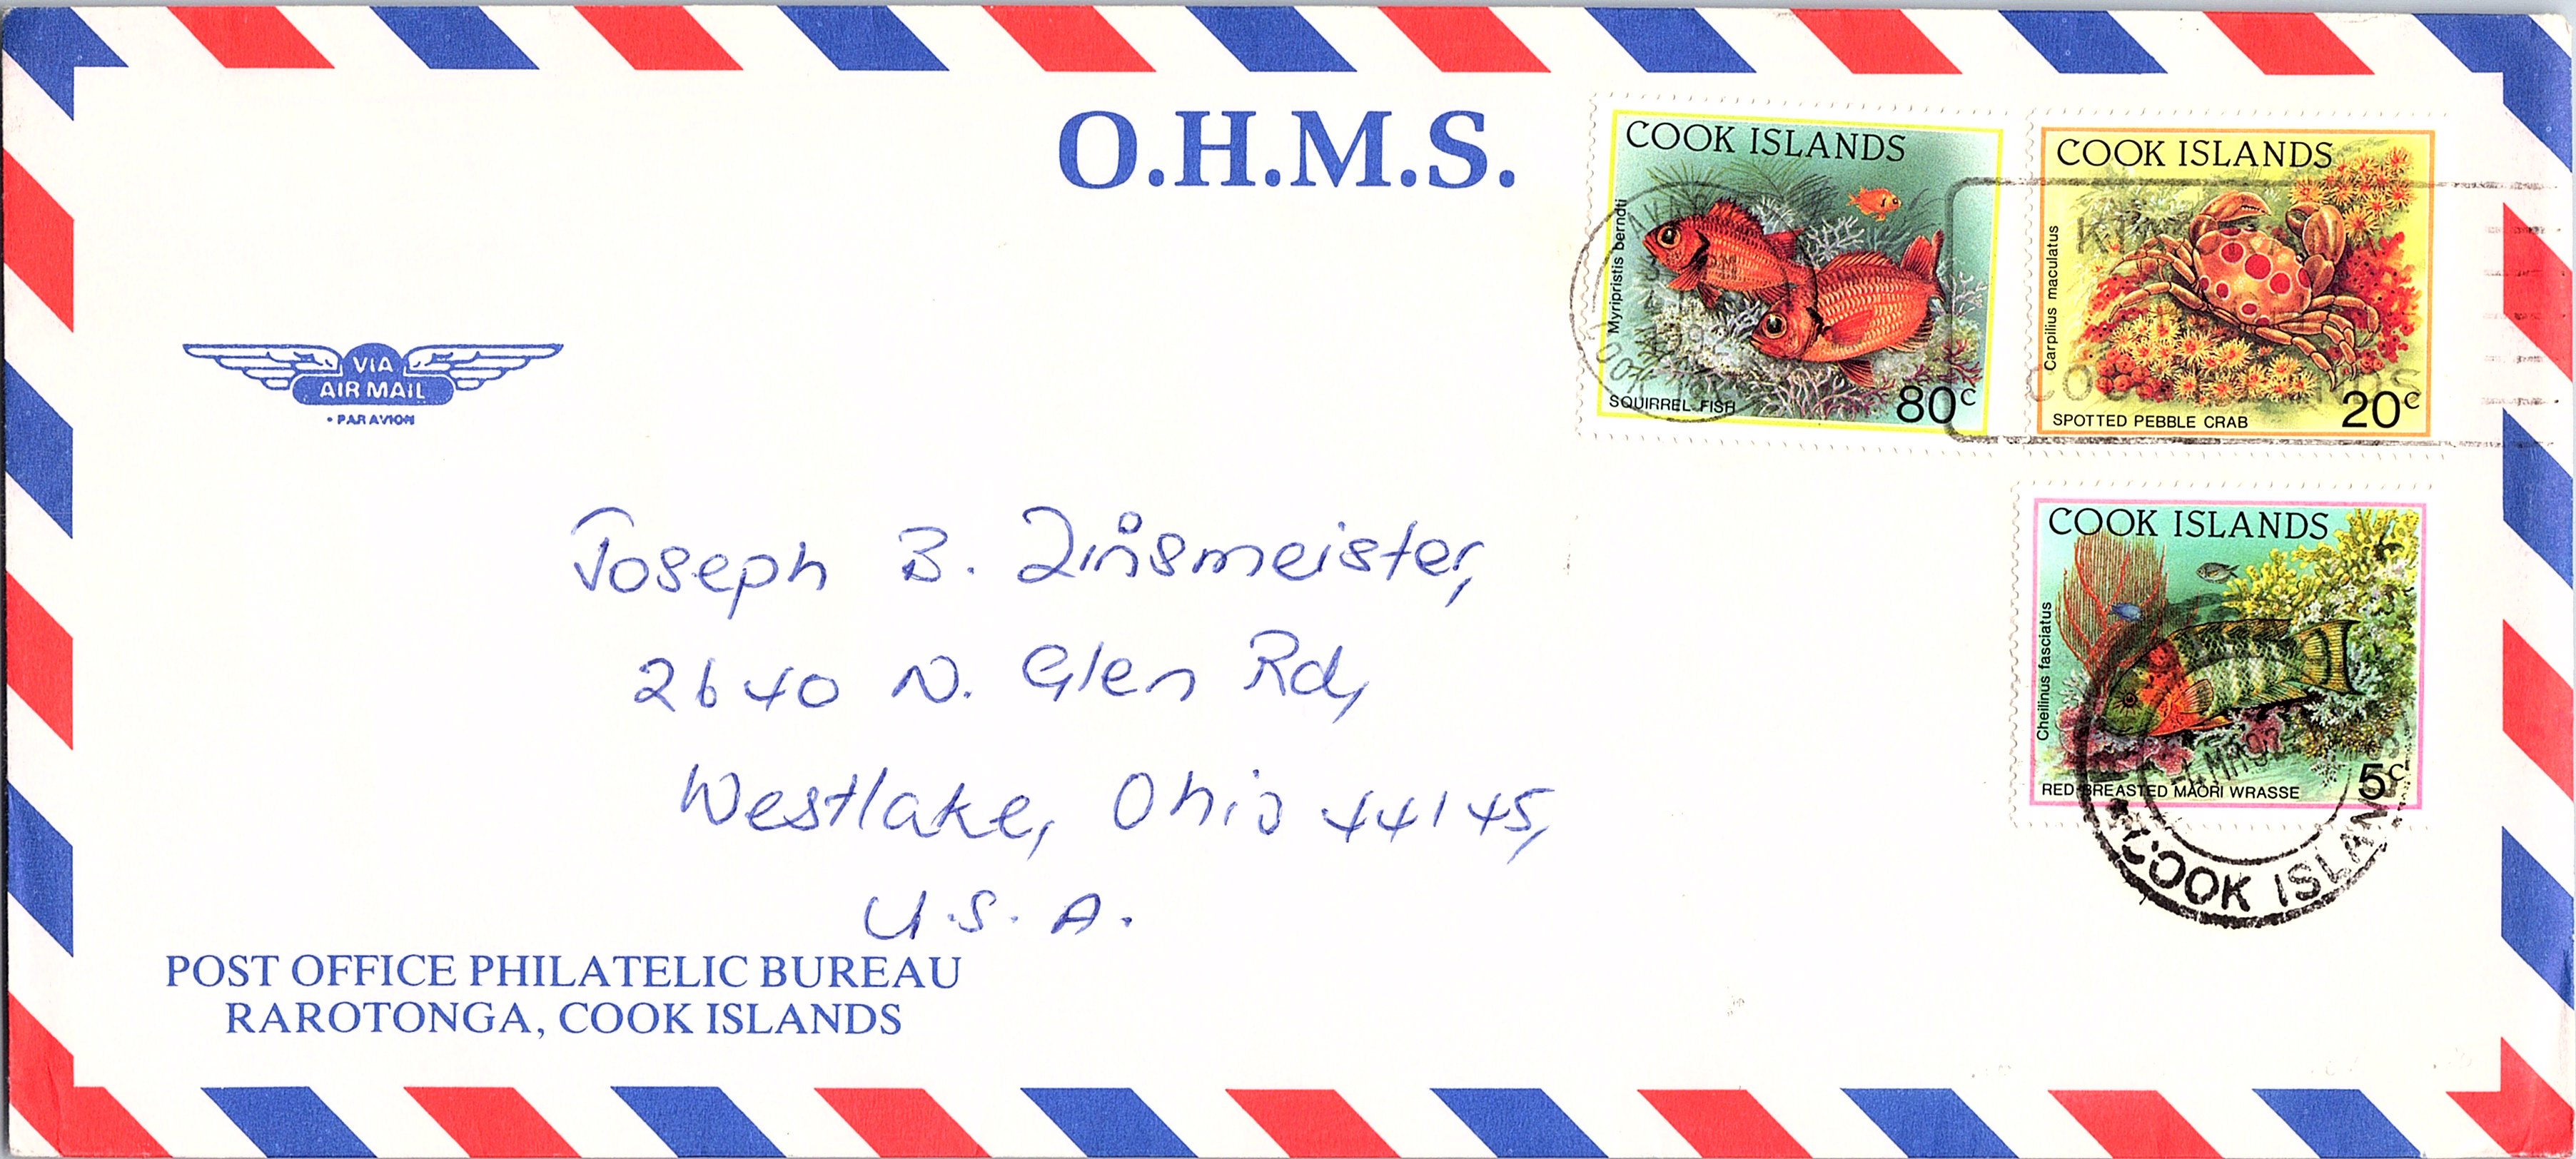 O.H.M.S.
VIA
AIR MAIL
• PAR AVION
COOK ISLANDS
Myripristis berndti
SQUIRREL FISH
80c
COOK ISLANDS
Carpilius maculatus
SPOTTED PEBBLE CRAB
20c
COOK ISLANDS
Cheilinus fasciatus
RED-BREASTED MAORI WRASSE
5c
COOK ISLANDS
Joseph B. Zinsmeister,
2640 N. Glen Rd,
Westlake, Ohio 44145,
U.S.A.
POST OFFICE PHILATELIC BUREAU
RAROTONGA, COOK ISLANDS